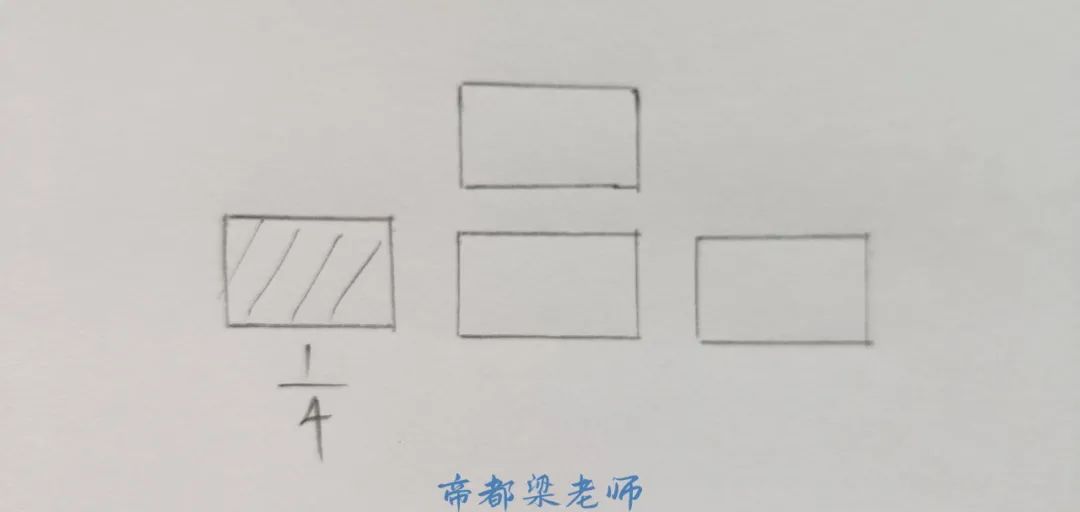 1
4
帝都梁老师